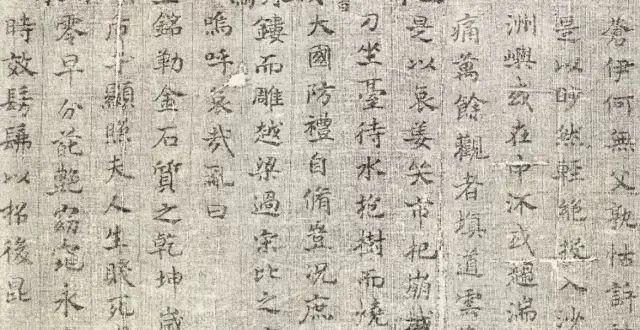 蒼伊何無父孰怙訴
是以眇然輕絕投入沙
洲嶼或在中流或趨湍
痛萬餘觀者填道雲
是以哀姜哭市杞崩城
刀坐臺待水抱樹而燒
大國防禮自脩豈況庶
鏤而雕越梁過宋比之
嗚呼哀哉亂曰
銘勒金石質之乾坤歲
后土顯照夫人生賤死
零早分葩艷窈窕永
時效髣髴以招後昆